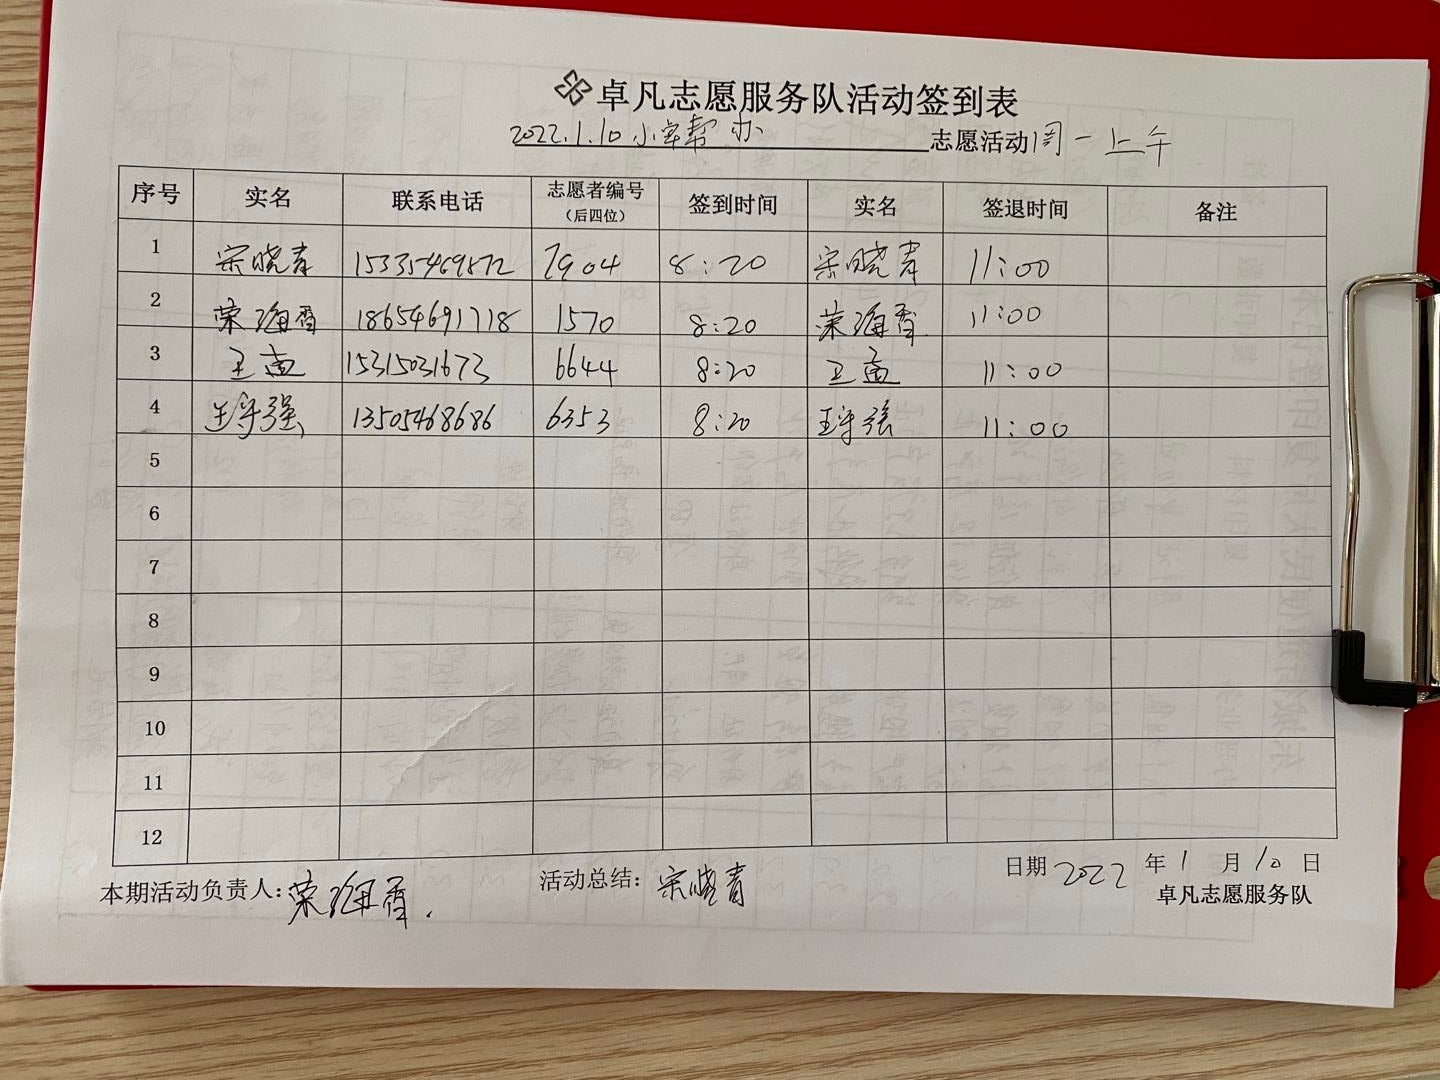 卓凡志愿服务队活动签到表
2022.1.10 小卓帮办 志愿活动 周一上午
序号 实名 联系电话 志愿者编号（后四位） 签到时间 实名 签退时间 备注
1 宋晓青 15335469872 7904 8:20 宋晓青 11:00
2 荣海香 18654691718 1570 8:20 荣海香 11:00
3 王孟 15315031673 6644 8:20 王孟 11:00
4 王守强 13505468686 6353 8:20 王守强 11:00
5
6
7
8
9
10
11
12
本期活动负责人：荣海香. 活动总结：宋晓青 日期 2022 年 1 月 10 日
卓凡志愿服务队